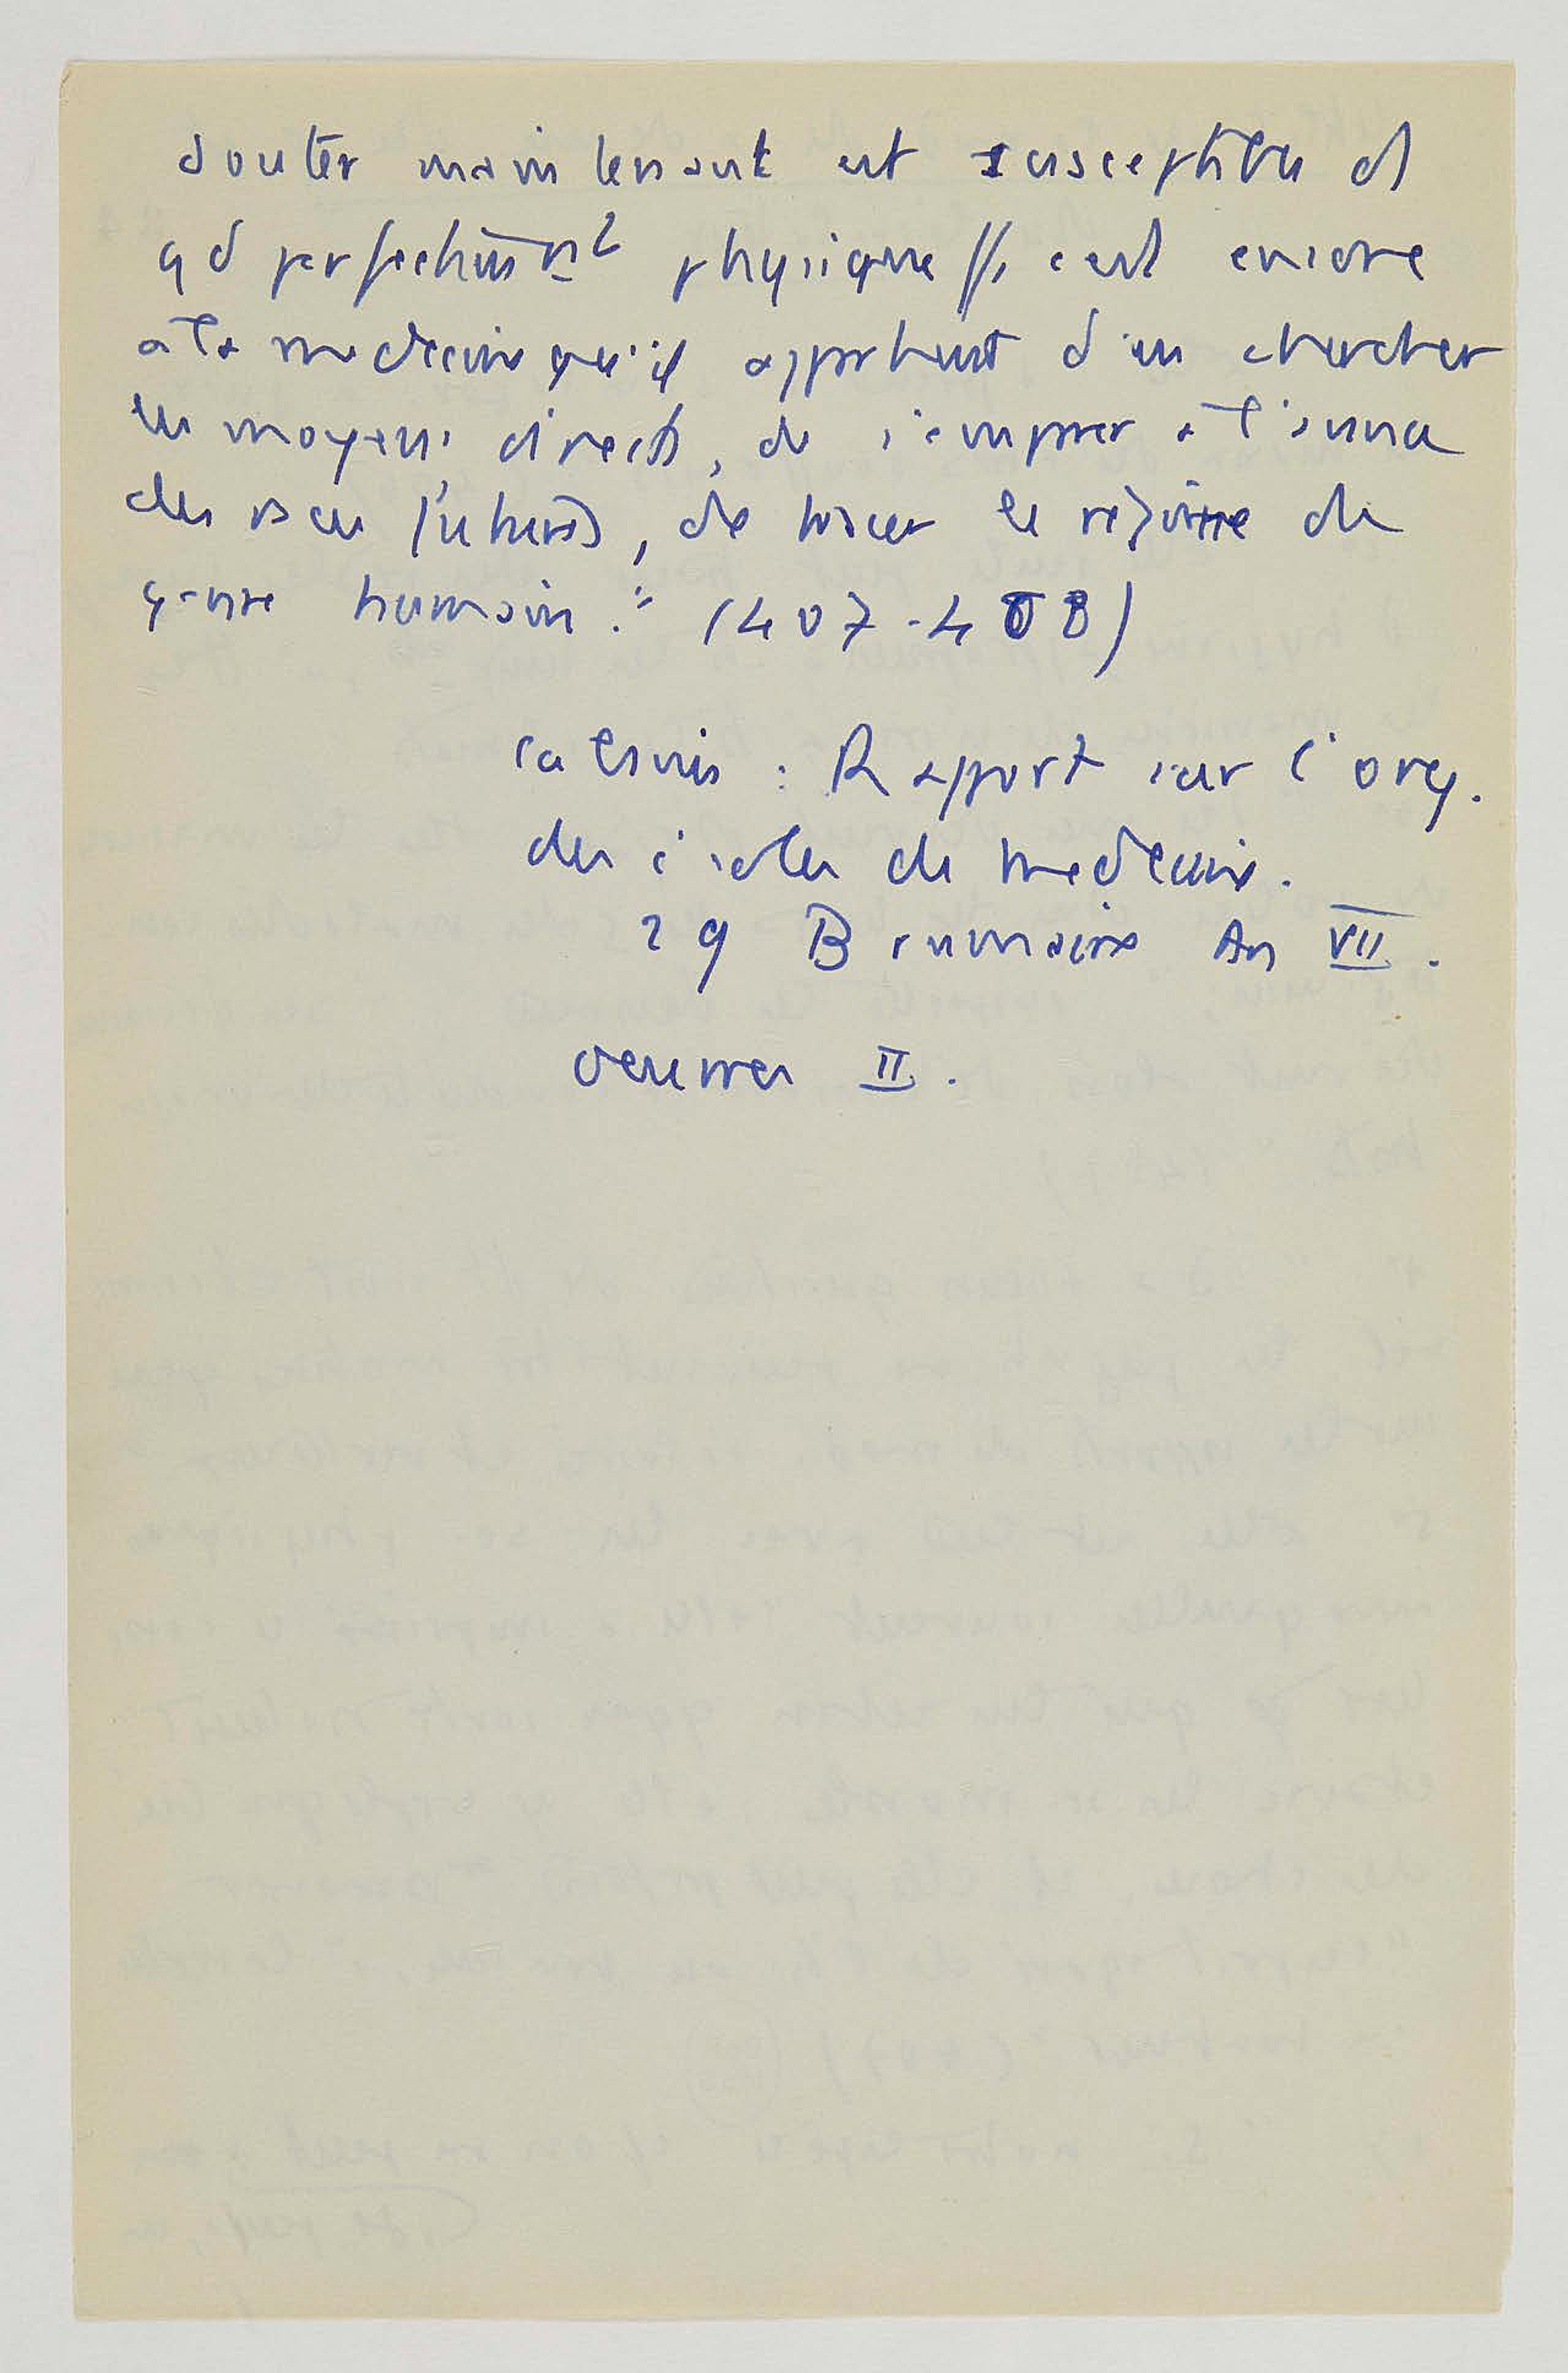 douter maintenant est susceptible d
gd perfectionnt physique, c'est encore
à la médecine qu'il appartient d'en chercher
les moyens directs, de s'emparer à l'avance
des races futures, de tracer le régime du
genre humain." (407-408)
Cabanis : Rapport sur l'org.
des écoles de médecine.
29 Brumaire An VII.
Oeuvres II.